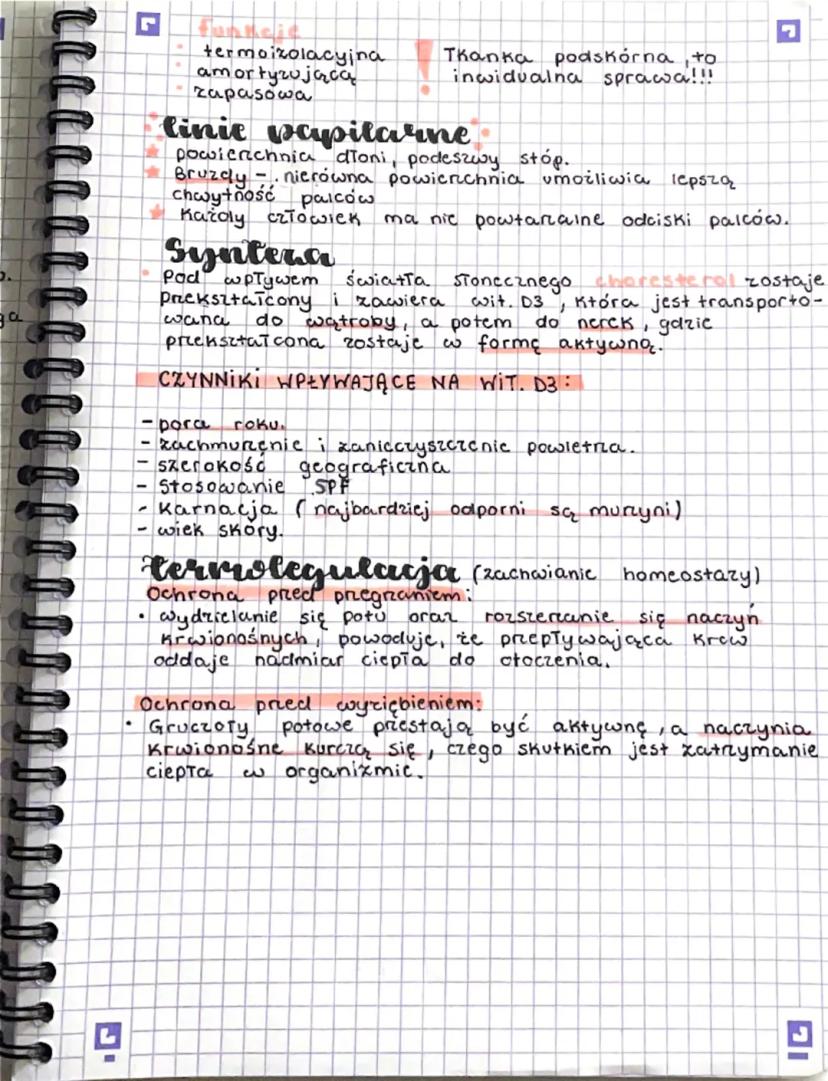 funkcje
termoizolacyjna
amortyzującą
zapasowa
! Tkanka podskórna, to
inwidualna sprawa!!!
linie papilarne
powierzchnia dłoni, podeszwy stóp.
Bruzdy - nierówna powierzchnia umożliwia lepszą
chwytność palców
Każdy człowiek ma nie powtarzalne odciski palców.
Synteza
Pod wpływem światła słonecznego choresterol zostaje
przekształcony i zawiera wit. D3, która jest transporto-
wana do wątroby, a potem do nerek, gdzie
przekształcona zostaje w formę aktywną.
CZYNNIKI WPŁYWAJĄCE NA WIT. D3:
- pora roku.
- zachmurzenie i zanieczyszczenie powietrza.
- szerokość geograficzna
- Stosowanie SPF
- Karnacja (najbardziej odporni są murzyni)
- wiek skóry.
termolegulacja (zachwianie homeostazy)
Ochrona przed przegrzaniem:
• wydzielanie się potu oraz rozszerzanie się naczyń
krwionośnych, powoduje, że przepływająca krew
oddaje nadmiar ciepła do otoczenia.
Ochrona przed wyziębieniem:
• Gruczoły potowe przestają być aktywnę, a naczynia
krwionośne kurczą się, czego skutkiem jest zatrzymanie
ciepła w organizmie.